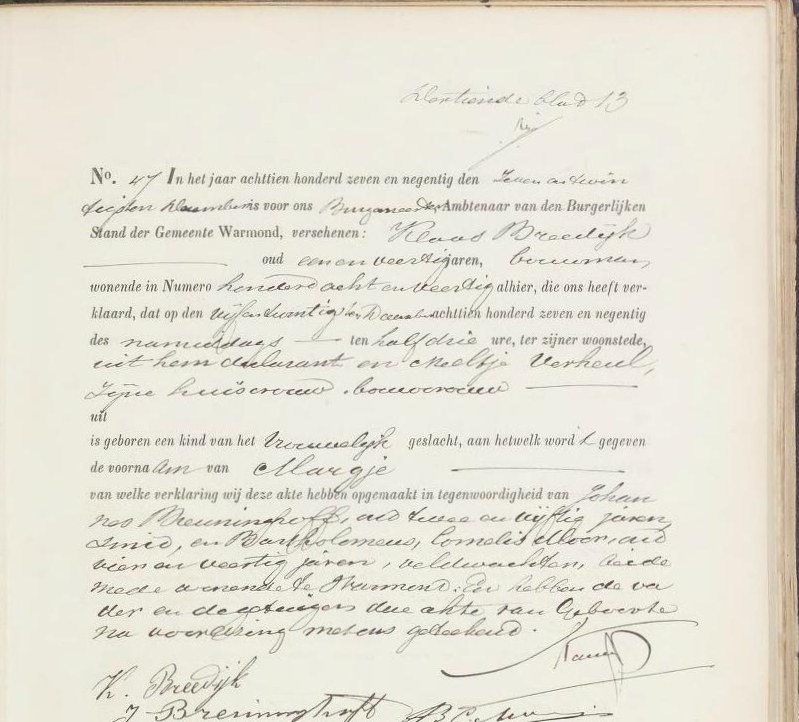 Dertiende blad 13
No. 47 In het jaar achttien honderd zeven en negentig den Zeven en twin
tigsten December is voor ons Burgemeester Ambtenaar van den Burgerlijken
Stand der Gemeente Warmond, verschenen: Klaas Breedijk
oud een en veertig jaren, bouwman,
wonende in Numero honderd acht en veertig alhier, die ons heeft ver-
klaard, dat op den vijf en twintigsten December achttien honderd zeven en negentig
des namiddags ten half drie ure, ter zijner woonstede,
uit hem declarant en Neeltje Verheul,
Zijne huisvrouw, bouwvrouw
uit
is geboren een kind van het Vrouwelijk geslacht, aan hetwelk word t gegeven
de voorna am van Margje
van welke verklaring wij deze akte hebben opgemaakt in tegenwoordigheid van Johan
nes Breuninghoff, oud twee en vijftig jaren,
smid, en Bartholomeus, Cornelis Moor, oud
vier en veertig jaren, veldwachter, beide
mede wonende te Warmond. En hebben de va
der en de getuigen deze akte van Geboorte
na voorlezing met ons geteekend.
K. Breedijk
J Breuninghoff B C Moor